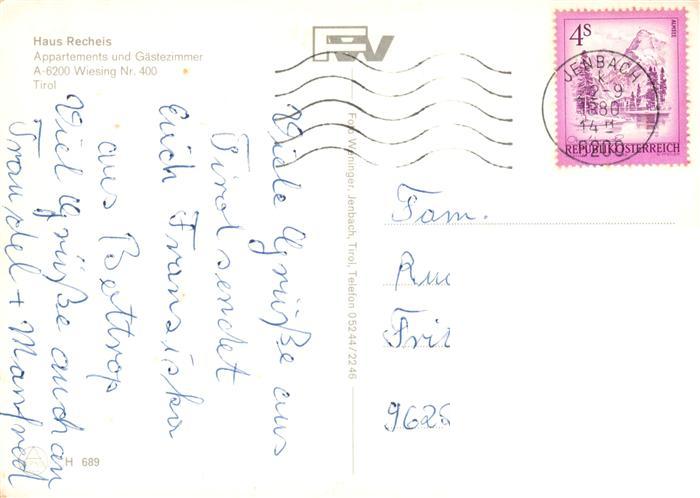 Haus Recheis
Appartements und Gästezimmer
A-6200 Wiesing Nr. 400
Tirol
Viele Grüße aus
Tirol sendet
Euch Fransiska
aus Bottrop
Viel Grüße auch an
Traudel + Manfred
H 689
Foto Weninger, Jenbach, Tirol, Telefon 05244/2246
4S
ALMSEE
REPUBLIK ÖSTERREICH
JENBACH
2-9
1980
14
6200
Fam.
Frit
9626